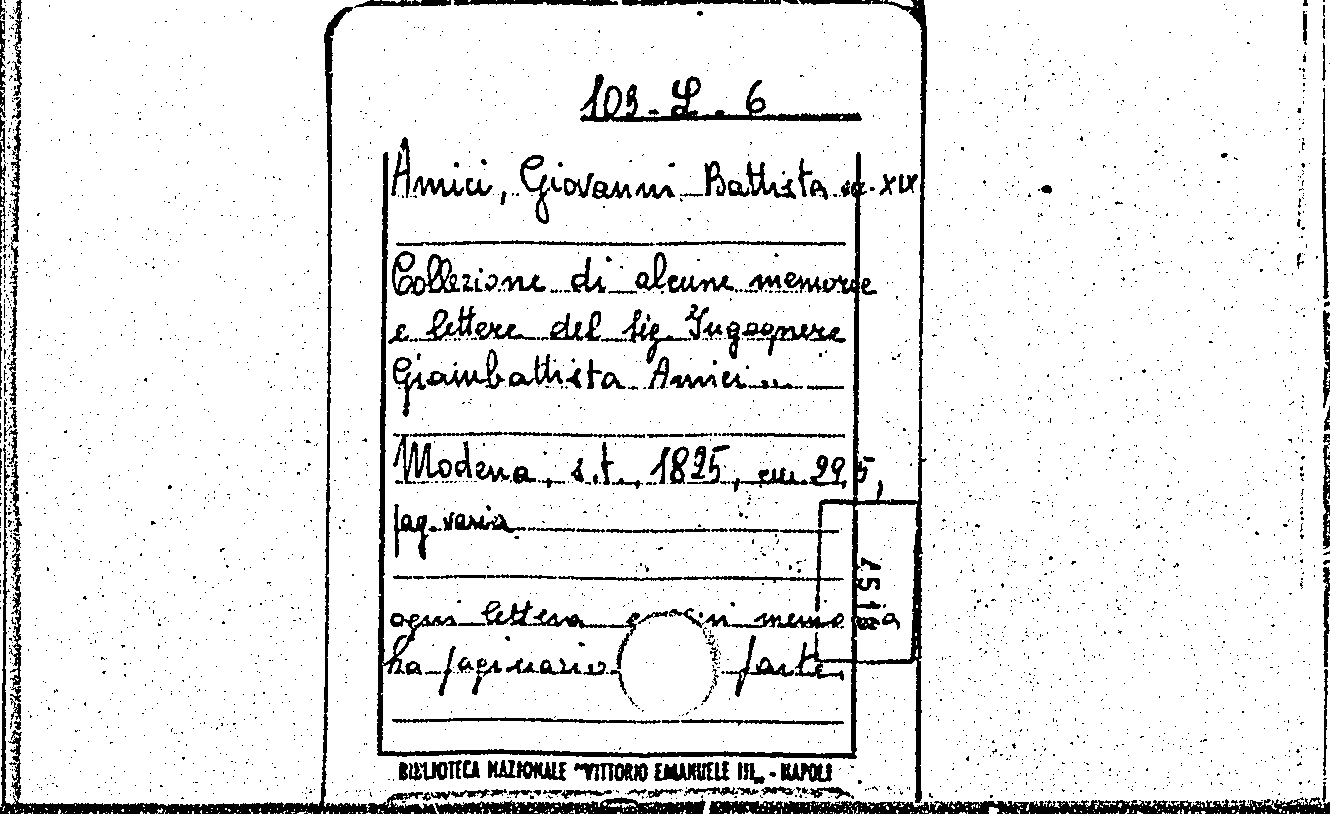 103-L. 6
Amici, Giovanni Battista sec. XIX
Collezione di alcune memorie
e lettere del Sig. Ingegnere
Giambattista Amici...
Modena, s.t., 1825, cm. 29,5,
pag. varia
ogni lettera e ogni memoria
ha paginario parte.
BIBLIOTECA NAZIONALE "VITTORIO EMANUELE III„ - NAPOLI